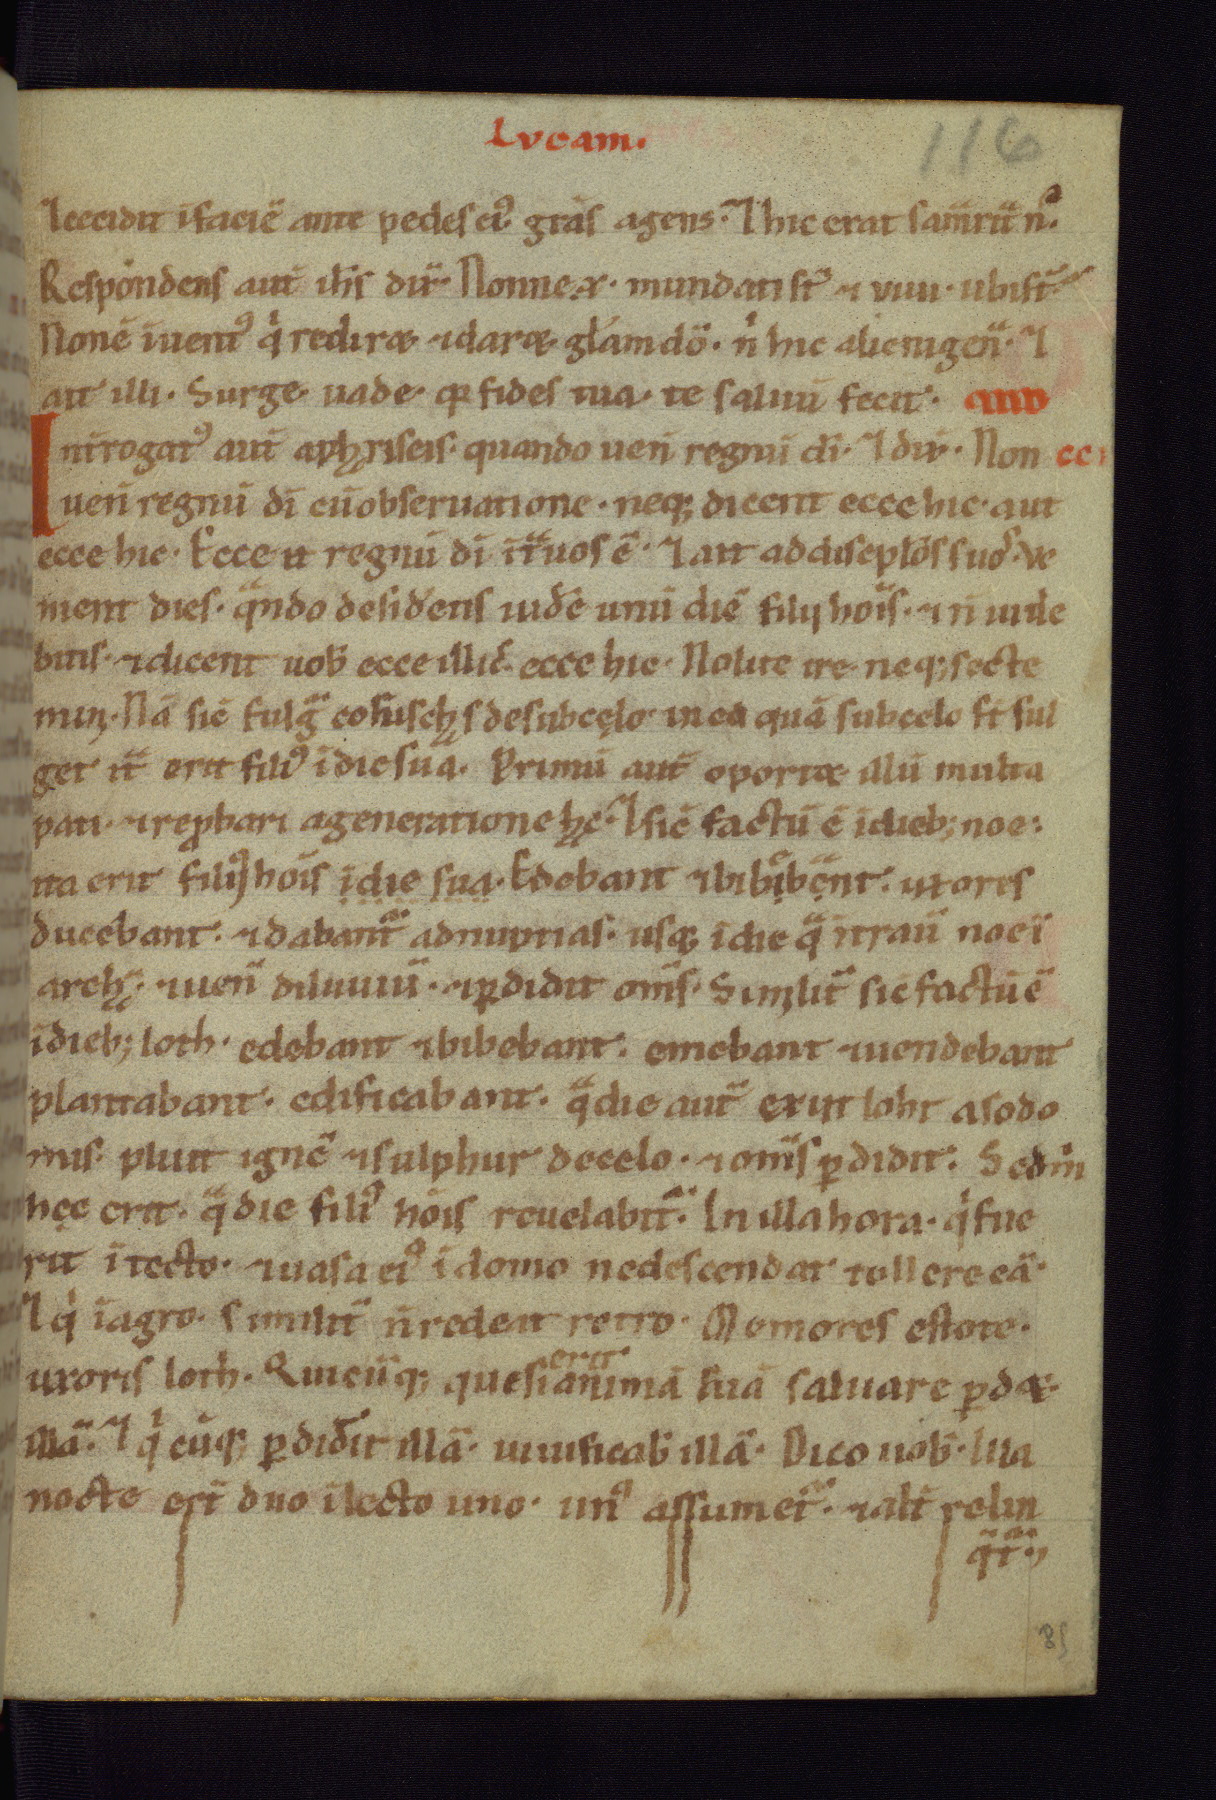 Lvcam.
116
⁊ cecidit ifaciē ante pedes ei᾽ grās agens. ⁊ hic erat samritn᾽.
Respondens aut̄ ih̄s dix̄. Nonne .x. mundati st̄ ⁊ viiii. ubi st̄.
Nonē īuent᾽ q̇ redirꝫ ⁊ darꝫ gl̄am dō. n̄ hic alienigen̄. ⁊
ait illi. Surge uade. qꝛ fides tua te saluū fecit.
Int̄rogat᾽ aut̄ aphęriseis. quando uen̄ regnū dī. ⁊ dix̄. Non cc
uen̄ regnū dī cū obseruatione. neqꝫ dicent ecce hic. aut
ecce hic. Ecce n̄ regnū dī it̄ uos ē. ⁊ ait ad discip̄los suos. Ve
nient dies. qndo desid̄etis uid̄e unū diē filij hois. ⁊ n̄ uide
bitis. ⁊ dicent uob̄ ecce illic. ecce hic. Nolite ire neqꝫ secte
mini. Nā sic̄ fulḡ coruschęs de sub cęlo in ea quā sub celo st̄ ful
get it̄ erit fili᾽ ī die sua. Primū aut̄ oportꝫ illū multa
pati. ⁊ reprobari a generatione hęc. ⁊ sic̄ factū ē ī diebꝫ noe.
ita erit filij hois ī die sua. Edebant ⁊ bibibęnt. uxores
ducebant. ⁊ dabant̄ ad nuptias. usqꝫ ī die q̄ ītrau̅ noe ī
archę. ⁊ uen̄ diluuiū. ⁊ ꝑdidit om̄s. Similit̄ sic̄ factū ē
ī diebꝫ loth. edebant ⁊ bibebant. emebant ⁊ uendebant
plantabant. edificabant. q̄ die aut̄ exiit loht a sodo
mis. pluit ignē ⁊ sulphur de celo. ⁊ om̄s ꝑdidit. Sed̄m
hęc erit. q̄ die fili᾽ hois reuelabit̄. In illa hora. q̇ fue
rit ī tecto. ⁊ uasa ei᾽ ī domo ne descendat tollere ea.
⁊ q̇ ī agro. similit̄ n̄ redeat retro. Memores estote.
uxoris loth. Quicūqꝫ quesierit animā suā saluare ꝑdꝫ
illā. ⁊ q̇cūqꝫ ꝑdid̄it illā. uiuificab̄ illā. Dico uob̄. Illa
nocte er̄t duo ī lecto uno. un᾽ assumet̄. ⁊ alt̄ relin
q̄t̄.
85